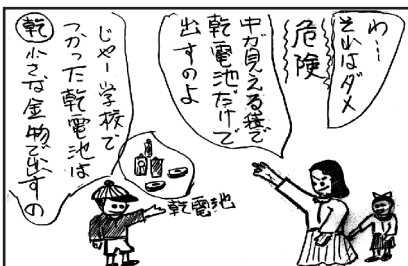 わー
それはダメ
危険
中が見える袋で
乾電池だけで
出すのよ
乾電池
じゃー学校で
つかった乾電池は
小さな金物で出すの
乾